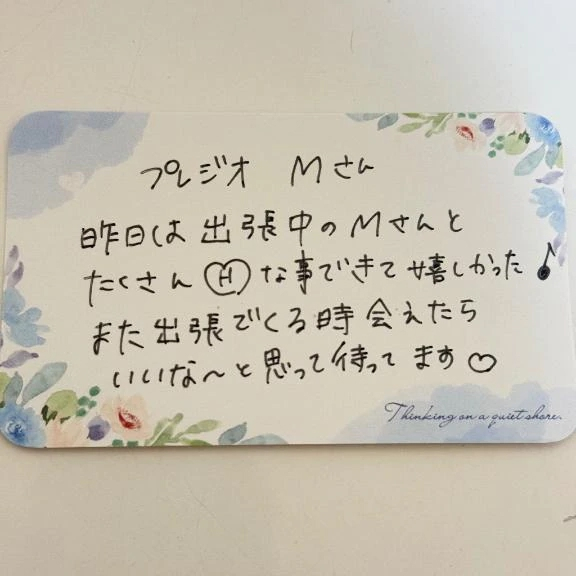 プレジオ Mさん
昨日は出張中のMさんと
たくさんⒽな事できて嬉しかった♪
また出張でくる時会えたら
いいな〜と思って待ってます♡
Thinking on a quiet shore.